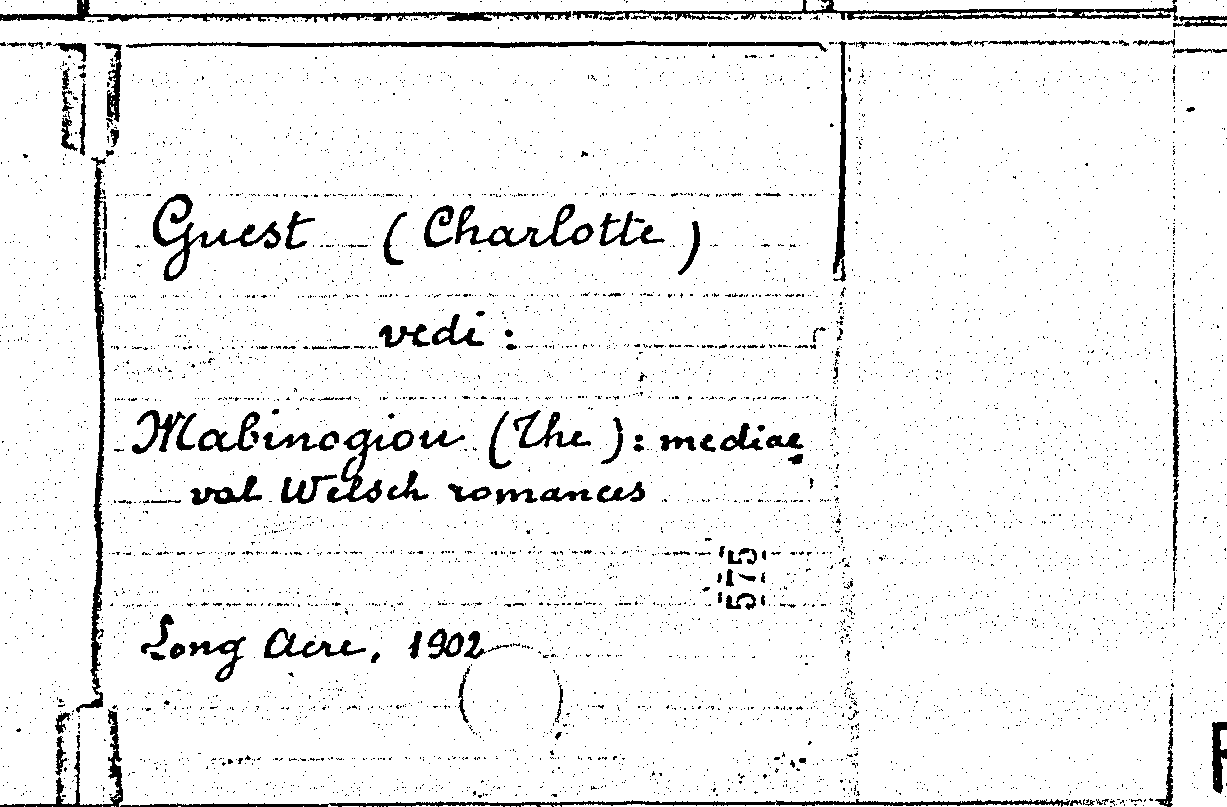 Guest (Charlotte)
vedi:
Mabinogion (The): mediae
val Welsch romances
575
Long Acre, 1902